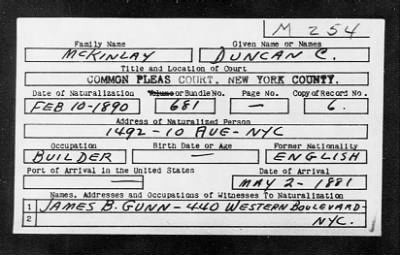 M 254
Family Name Given Name or Names
McKINLAY DUNCAN C.
Title and Location of Court
COMMON PLEAS COURT, NEW YORK COUNTY.
Date of Naturalization Volume or Bundle No. Page No. Copy of Record No.
FEB 10-1890 681 — 6.
Address of Naturalized Person
1492-10 AVE-NYC
Occupation Birth Date or Age Former Nationality
BUILDER — ENGLISH
Port of Arrival in the United States Date of Arrival
— MAY 2-1881
Names, Addresses and Occupations of Witnesses To Naturalization
1 JAMES B. GUNN-440 WESTERN BOULEVARD-
2 NYC.